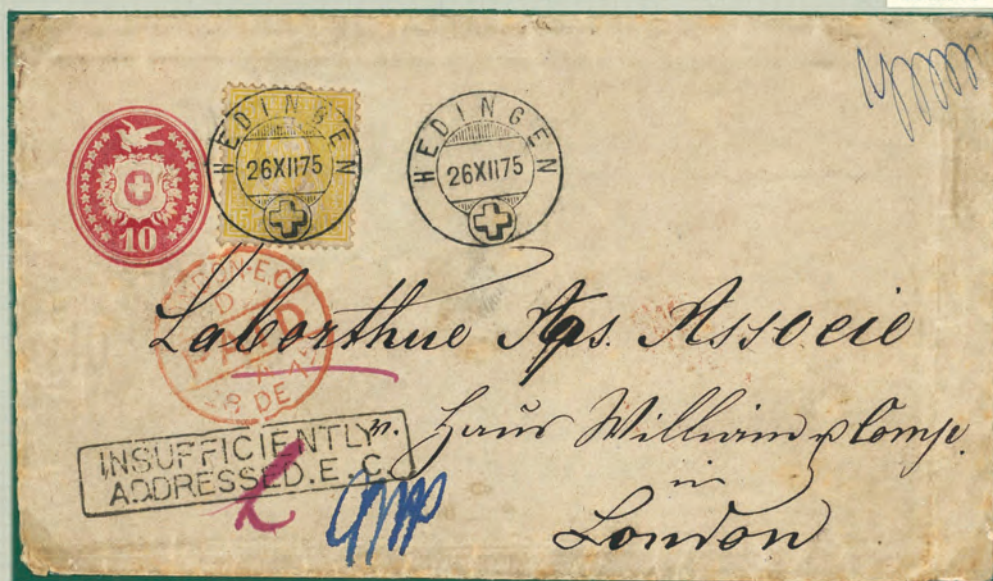 HEDINGEN
26XII75
HEDINGEN
26XII75
10
LONDON-E.C
PAID
28 DE 75
Laborthue Aps. Associe
v. Haus William & Comp.
in
London
INSUFFICIENTLY
ADDRESSED.E.C.